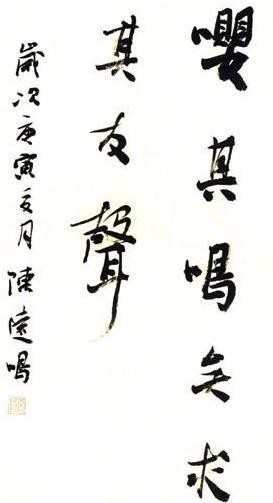 嚶其鳴矣求
其友聲
歲次庚寅亥月陳遠鳴